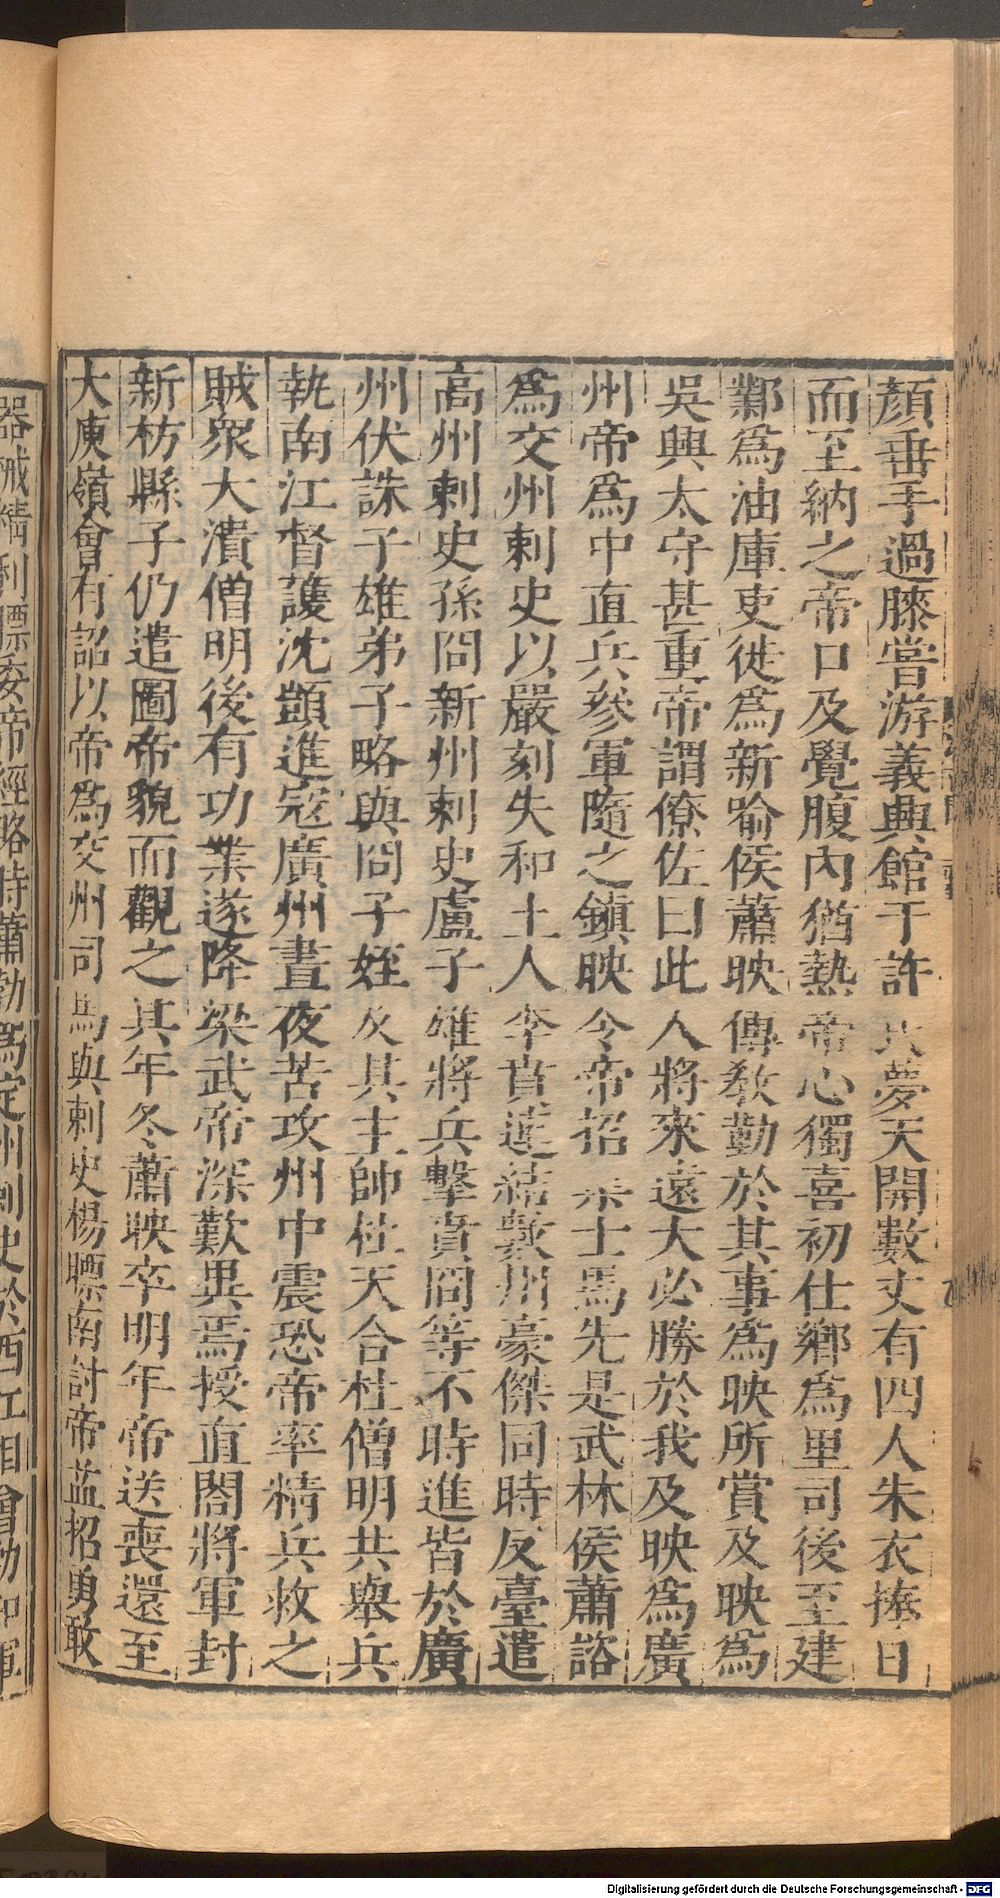 顔垂手過膝嘗游義興館于許氏夢天開數丈有四人朱衣捧日
而至納之帝口及覺腹內猶熱帝心獨喜初仕鄉爲里司後至建
鄴爲油庫吏徙爲新喻侯蕭映傳敎勤於其事爲映所賞及映爲
吳興太守甚重帝謂僚佐曰此人將來遠大必勝於我及映爲廣
州帝爲中直兵參軍隨之鎮映令帝招集士馬先是武林侯蕭諮
爲交州刺史以嚴刻失和土人李賁連結數州豪傑同時反臺遣
高州刺史孫冏新州刺史盧子雄將兵擊賁冏等不時進皆於廣
州伏誅子雄弟子略與冏子姪及其主帥杜天合杜僧明共舉兵
執南江督護沈顗進寇廣州晝夜苦攻州中震恐帝率精兵救之
賊衆大潰僧明後有功業遂降梁武帝深歎異焉授直閤將軍封
新枋縣子仍遣圖帝貌而觀之其年冬蕭映卒明年帝送喪還至
大庾嶺會有詔以帝爲交州司馬與刺史楊瞟南討帝益招勇敢
器械精利瞟委帝經略時蕭勃爲定州刺史於西江相會勃知軍
Digitalisierung gefördert durch die Deutsche Forschungsgemeinschaft - DFG